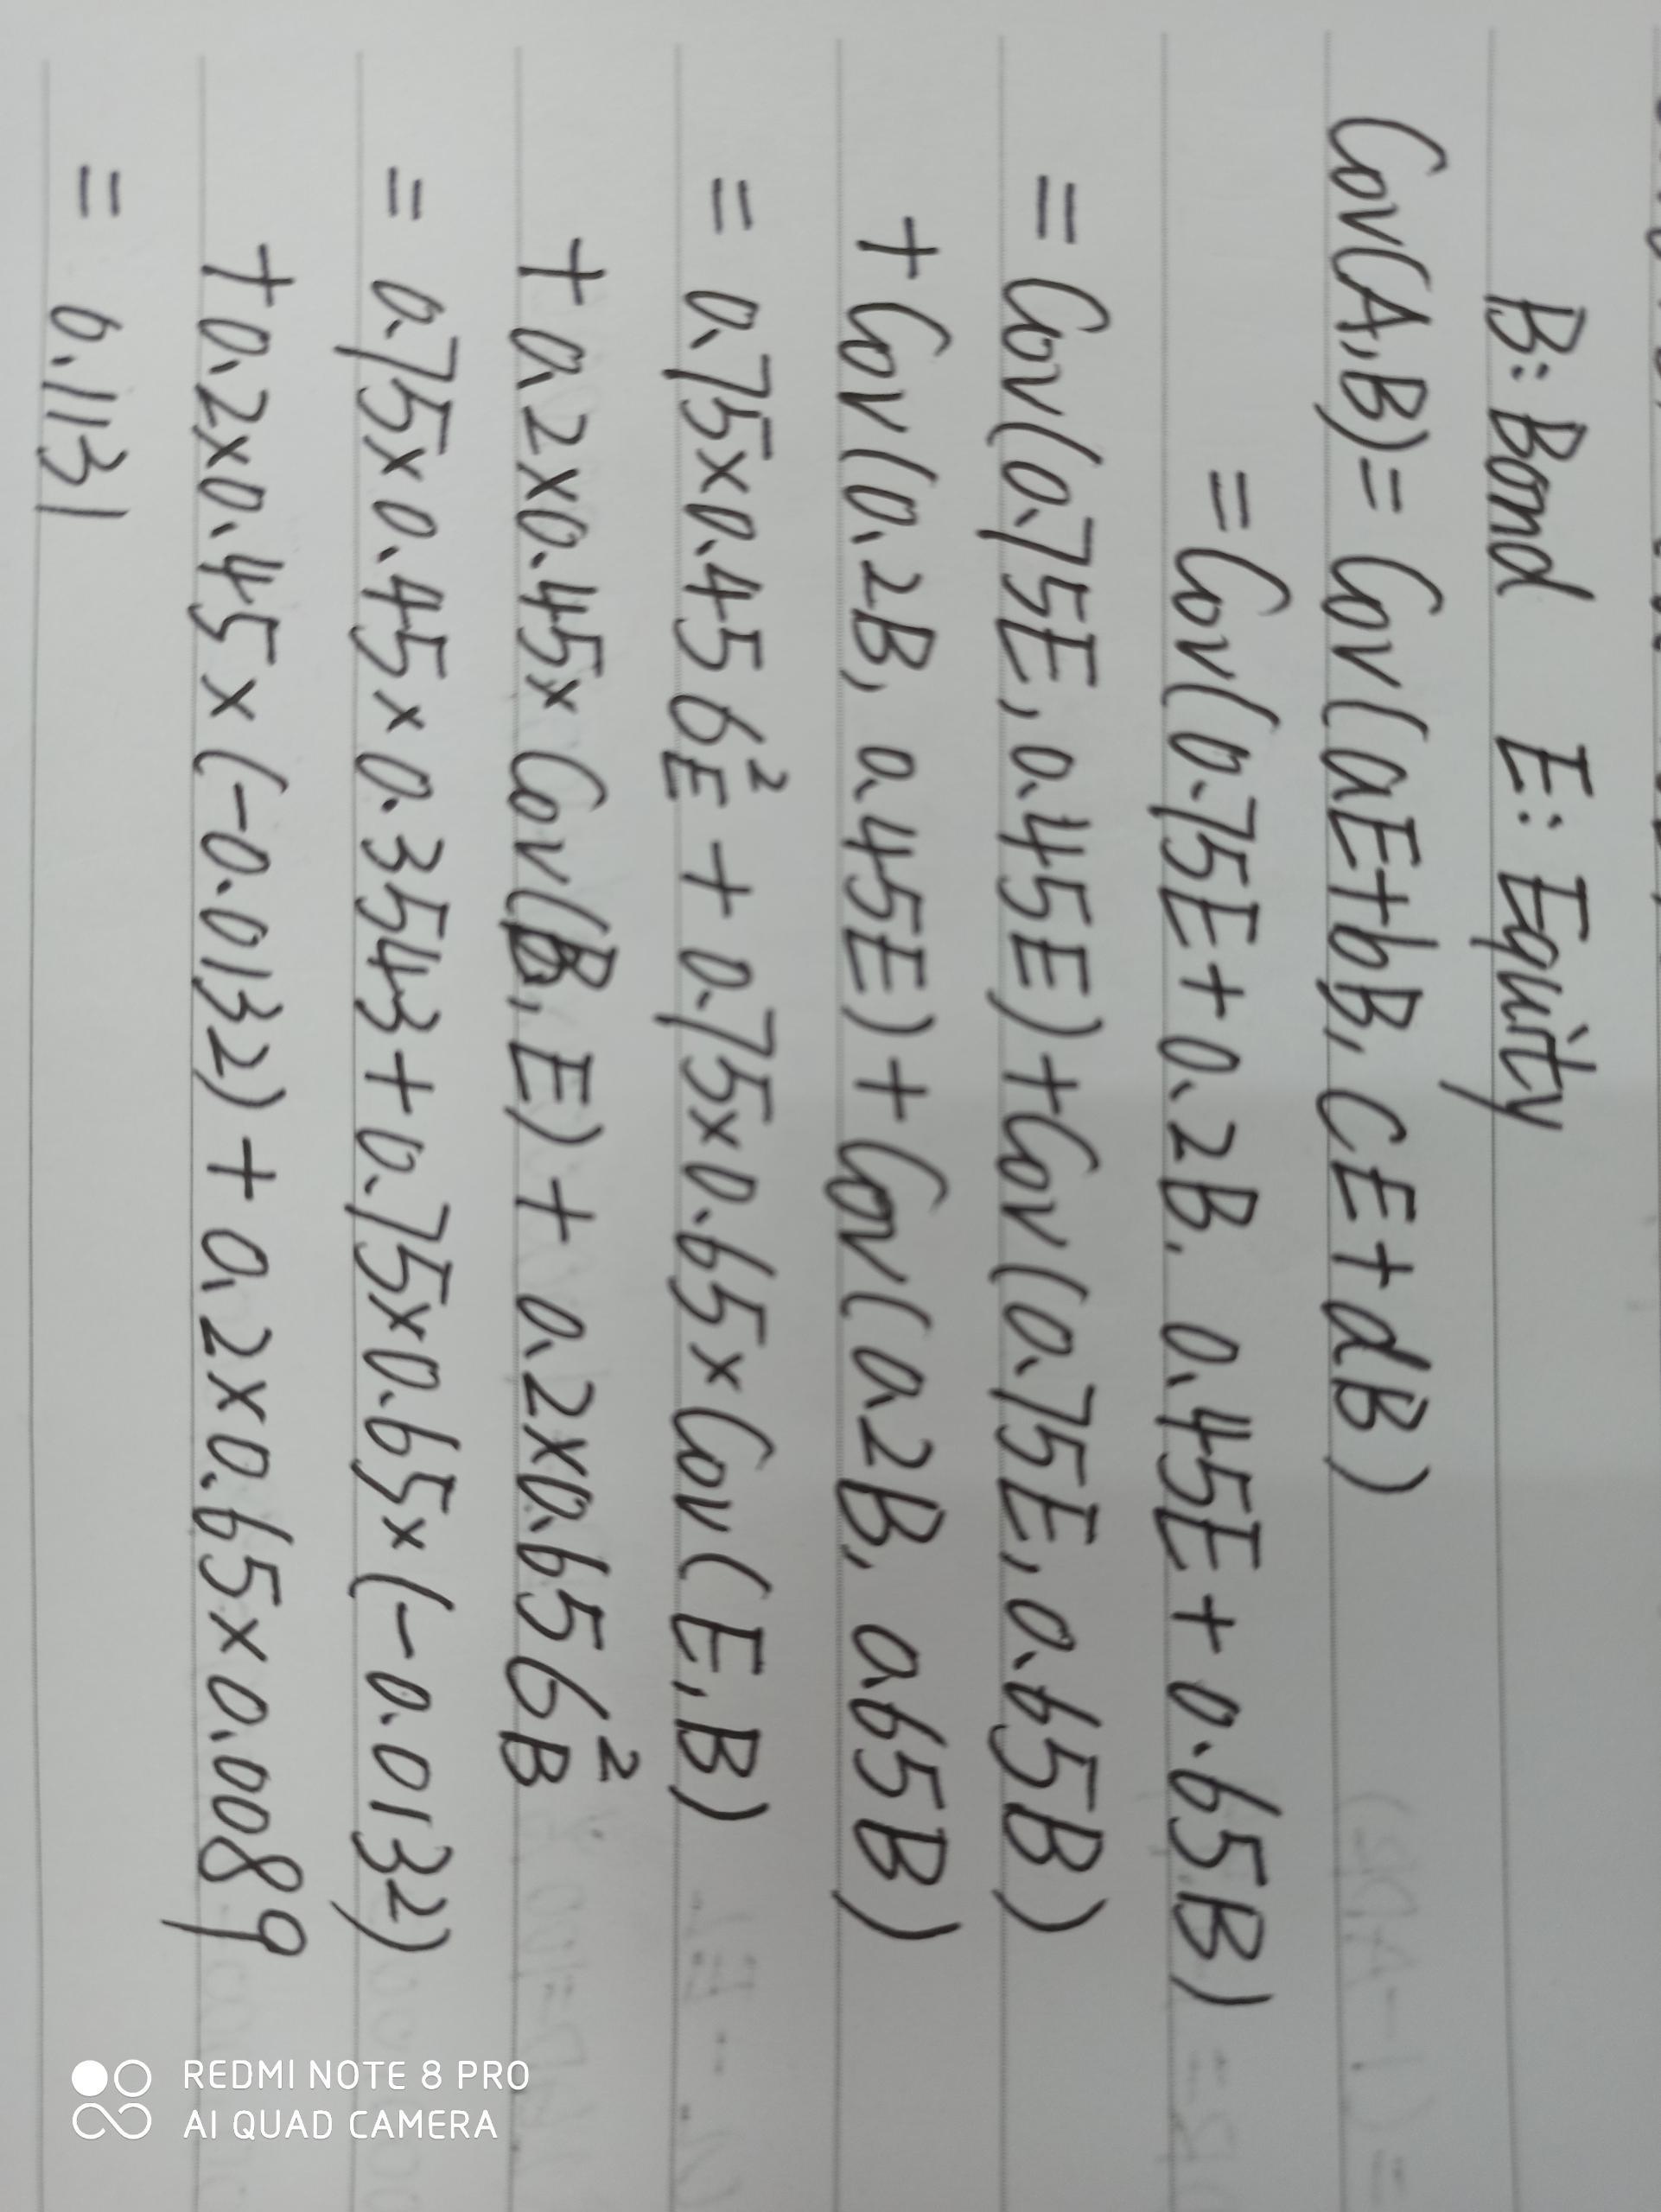 B: Bond E: Equity
Cov(A,B) = Cov(aE+bB, CE+dB)
= Cov(0.75E+0.2B, 0.45E+0.65B)
= Cov(0.75E, 0.45E)+Cov(0.75E, 0.65B)
+ Cov(0.2B, 0.45E)+Cov(0.2B, 0.65B)
= 0.75×0.45 6E² + 0.75×0.65×Cov(E,B)
+ 0.2×0.45×Cov(B,E)+ 0.2×0.65 6B²
= 0.75×0.45×0.3543+0.75×0.65×(-0.0132)
+0.2×0.45×(-0.0132)+0.2×0.65×0.0089
= 0.1131
REDMI NOTE 8 PRO
AI QUAD CAMERA